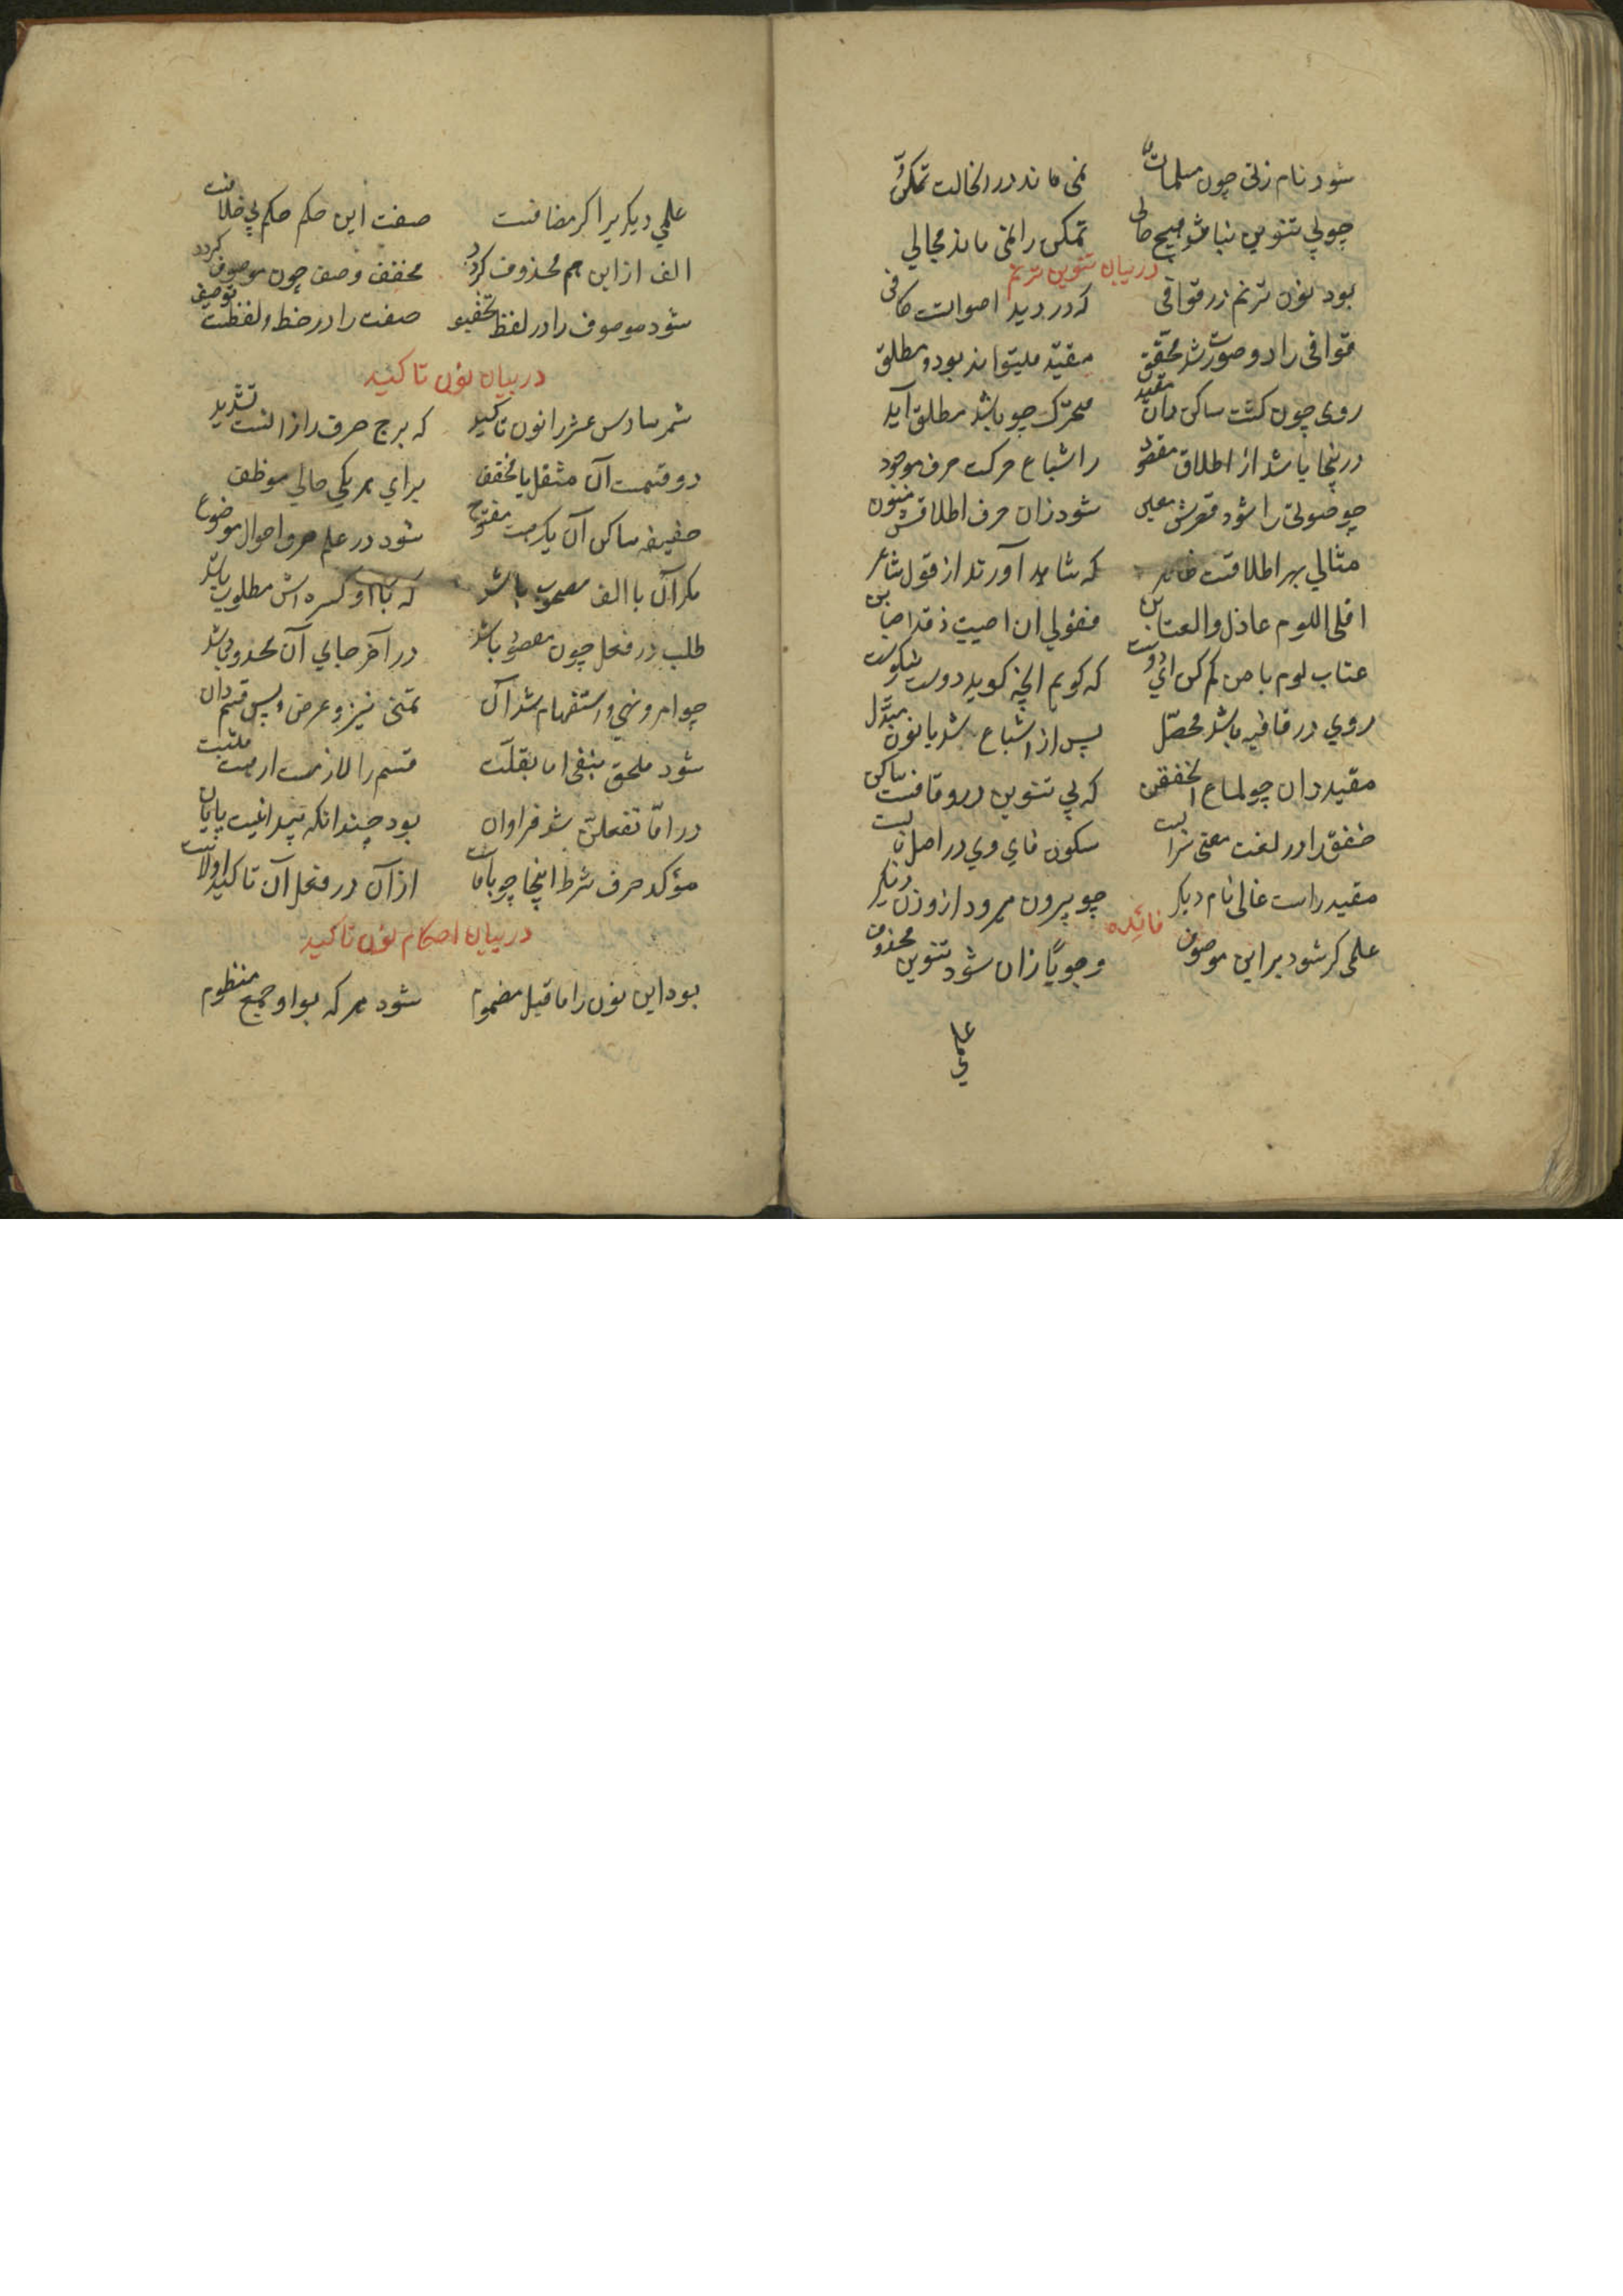 شود نام زنی چون مسلمات نمی ماند در انحالت تمکن
چو بی تنوین نباشد هیچ حالی تمکن را نمی ماند مجالی
در بیان تنوین ترنم
بود نون ترنم در قوافی که در دید اصواتست کافی
قوافی را دو صورت شد محقق مقید میتواند بود و مطلق
روی چون گشت ساکن دان مقید محرک چو باشد مطلق آید
درینجا باشد از اطلاق مقصود را شباع حرکت حرف موجود
چو صوتی را شود معین شود زان حرف اطلاقش منون
مثالی بهر اطلاقست که شاهد آورند از قول شاعر
اقلی اللوم عاذل والعتابن فقولی ان اصبت لقد اصابن
عتاب لوم با من کم کن ای دوست که گویم انچه گوید دوست نیکوست
روی در قافیه باشد محصل پس از اشباع شد با نون مبدل
مقید دان چو لماع الخفقن که بی تنوین در و قافست ساکن
خفق را در لغت معنی سکون فای وی در اصل
مقید راست غالی نام دیکر چو بیرون میرود از وزن دیکر
فائده
علمی کر شود بر ابن موصوف وجوبًا زان شود تنوین محذوف
علمی
علمی دیکر برا کر مضافست صفت این حکم حکم بی خلافست
الف از ابن هم محذوف کردد مخفف وصف چون موصوف کردد
شود موصوف را در لفظ تخفیف صفت را در خط و لفظست توصیف
در بیان نون تاکید
شمر سادس عشر را نون تاکید که بر ج حرف را از انست تشدید
دو قسمست آن مثقل یا مخفف برای هر یکی حالی موظف
خفیفه ساکن آن یک هست مفتوح شود در علم صرف احوال موضوع
مکر آن با الف مصحوب باشد که با او کسره اش مطلوب باشد
طلب در فعل چون مقصود باشد در آخر جای آن محدود باشد
چو امر و نهی و استفهام شد آن تمنی نیز و عرض و پس قسم دان
شود ملحق بنفی اما بقلت قسم را لازمست ار هست مثبت
در اما تفعلن شد فراوان بود چندانکه پیدا نیست پایان
مؤکد حرف شرط اینجا چو باماست از آن در فعل آن تاکید اولاست
در بیان احکام نون تاکید
بود این نون را ما قبل مضموم شود هر که بواو جمع منظوم